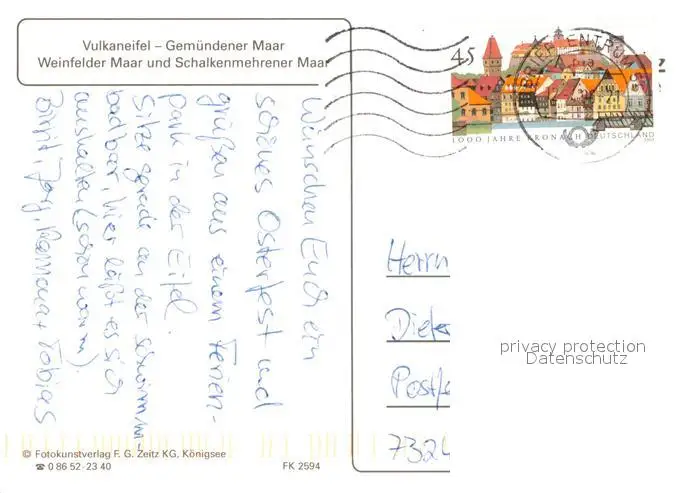 Vulkaneifel – Gemündener Maar
Weinfelder Maar und Schalkenmehrener Maar
Wünschen Euch ein
schönes Osterfest und
grüßen aus einem Ferien-
park in der Eifel.
Sitze gerade an der Schwimm-
badbar, hier läßt es sich
aushalten (schön warm).
Birgit, Jörg, Ramona + Tobias
© Fotokunstverlag F. G. Zeitz KG, Königsee
☎ 0 86 52 - 23 40
FK 2594
45
BRIEFZENTRUM
1000 JAHRE KRONACH DEUTSCHLAND
Herrn
Dieter
Postf
7324
privacy protection
Datenschutz